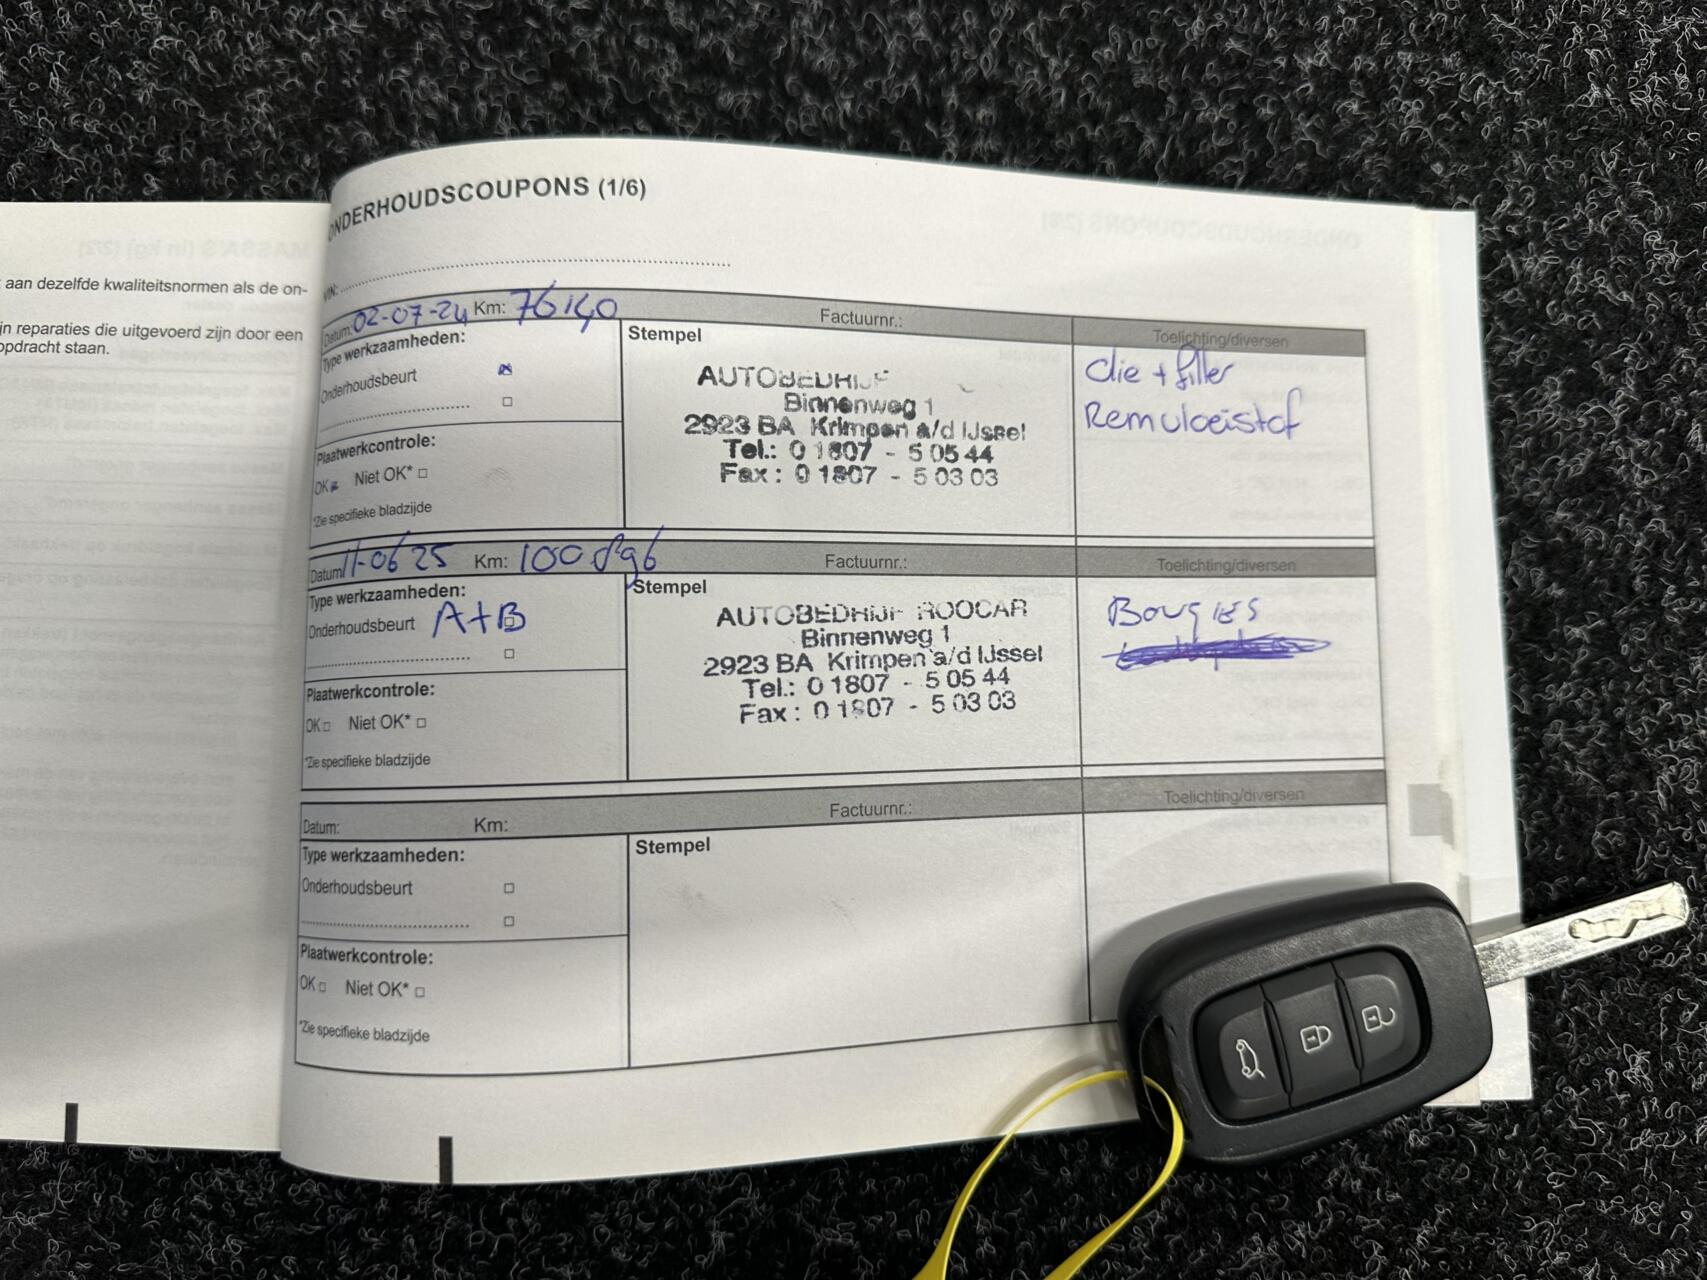 aan dezelfde kwaliteitsnormen als de on-
jn reparaties die uitgevoerd zijn door een
opdracht staan.
ONDERHOUDSCOUPONS (1/6)
VIN:
Datum: 02-07-24 Km: 76140 Factuurnr.: Toelichting/diversen
Type werkzaamheden:
Onderhoudsbeurt
Plaatwerkcontrole:
OK Niet OK*
*Zie specifieke bladzijde
Stempel
AUTOBEDRIJF
Binnenweg 1
2923 BA Krimpen a/d IJssel
Tel.: 0 1807 - 5 05 44
Fax : 0 1807 - 5 03 03
Olie + filter
Remvloeistof
Datum: 11-06 25 Km: 100 896 Factuurnr.: Toelichting/diversen
Type werkzaamheden:
Onderhoudsbeurt A+B
Plaatwerkcontrole:
OK Niet OK*
*Zie specifieke bladzijde
Stempel
AUTOBEDRIJF ROOCAR
Binnenweg 1
2923 BA Krimpen a/d IJssel
Tel.: 0 1807 - 5 05 44
Fax : 0 1807 - 5 03 03
Bougies
Datum: Km: Factuurnr.: Toelichting/diversen
Type werkzaamheden:
Onderhoudsbeurt
Plaatwerkcontrole:
OK Niet OK*
*Zie specifieke bladzijde
Stempel